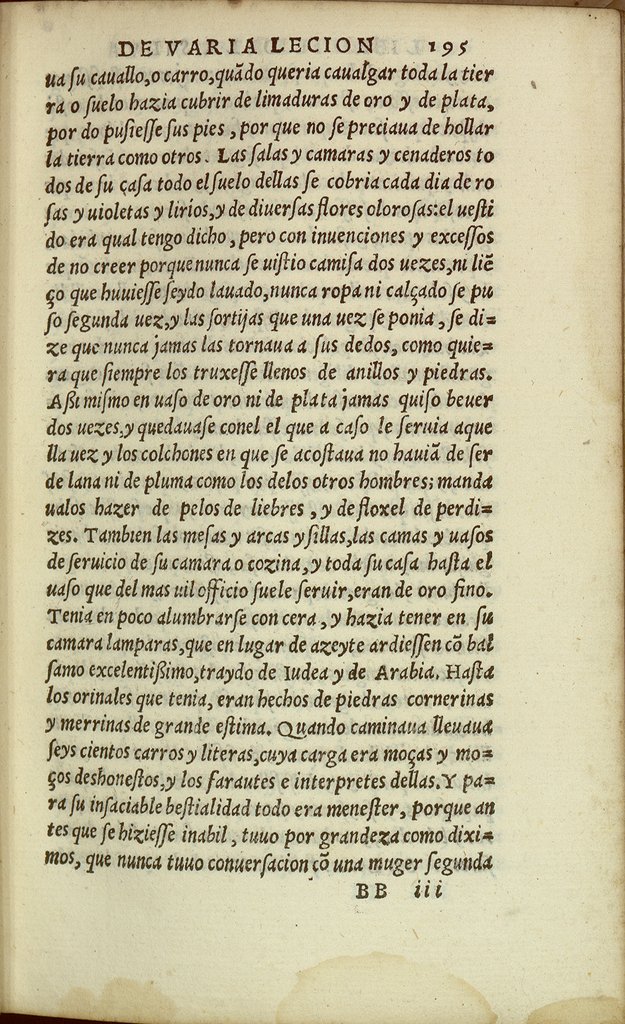 DE VARIA LECION 195
ua ſu cauallo,o carro,quãdo queria caualgar toda la tier
ra o ſuelo hazia cubrir de limaduras de oro y de plata,
por do puſieſſe ſus pies , por que no ſe preciaua de hollar
la tierra como otros . Las ſalas y camaras y cenaderos to
dos de ſu çaſa todo el ſuelo dellas ſe cobria cada dia de ro
ſas y uioletas y lirios,y de diuerſas flores oloroſas:el ueſti
do era qual tengo dicho , pero con inuenciones y exceſſos
de no creer porque nunca ſe uiſtio camiſa dos uezes,ni liẽ
ço que huuieſſe ſeydo lauado,nunca ropa ni calçado ſe pu
ſo ſegunda uez,y las ſortijas que una uez ſe ponia , ſe di=
ze que nunca jamas las tornaua a ſus dedos, como quie=
ra que ſiempre los truxeſſe llenos de anillos y piedras.
Aßi miſmo en uaſo de oro ni de plata jamas quiſo beuer
dos uezes,y quedauaſe conel el que a caſo le ſeruia aque
lla uez y los colchones en que ſe acoſtaua no hauiã de ſer
de lana ni de pluma como los delos otros hombres; manda
ualos hazer de pelos de liebres , y de floxel de perdi=
zes. Tambien las meſas y arcas y ſillas,las camas y uaſos
de ſeruicio de ſu camara o cozina,y toda ſu caſa haſta el
uaſo que del mas uil officio ſuele ſeruir,eran de oro fino.
Tenia en poco alumbrarſe con cera , y hazia tener en ſu
camara lamparas,que en lugar de azeyte ardieſſen cõ bal
ſamo excelentißimo,traydo de Iudea y de Arabia. Haſta
los orinales que tenia, eran hechos de piedras cornerinas
y merrinas de grande eſtima. Quando caminaua lleuaua
ſeys cientos carros y literas,cuya carga era moças y mo=
ços deshoneſtos,y los farautes e interpretes dellas.Y pa=
ra ſu inſaciable beſtialidad todo era meneſter, porque an
tes que ſe hizieſſe inabil , tuuo por grandeza como dixi=
mos, que nunca tuuo conuerſacion cõ una muger ſegunda
BB iii